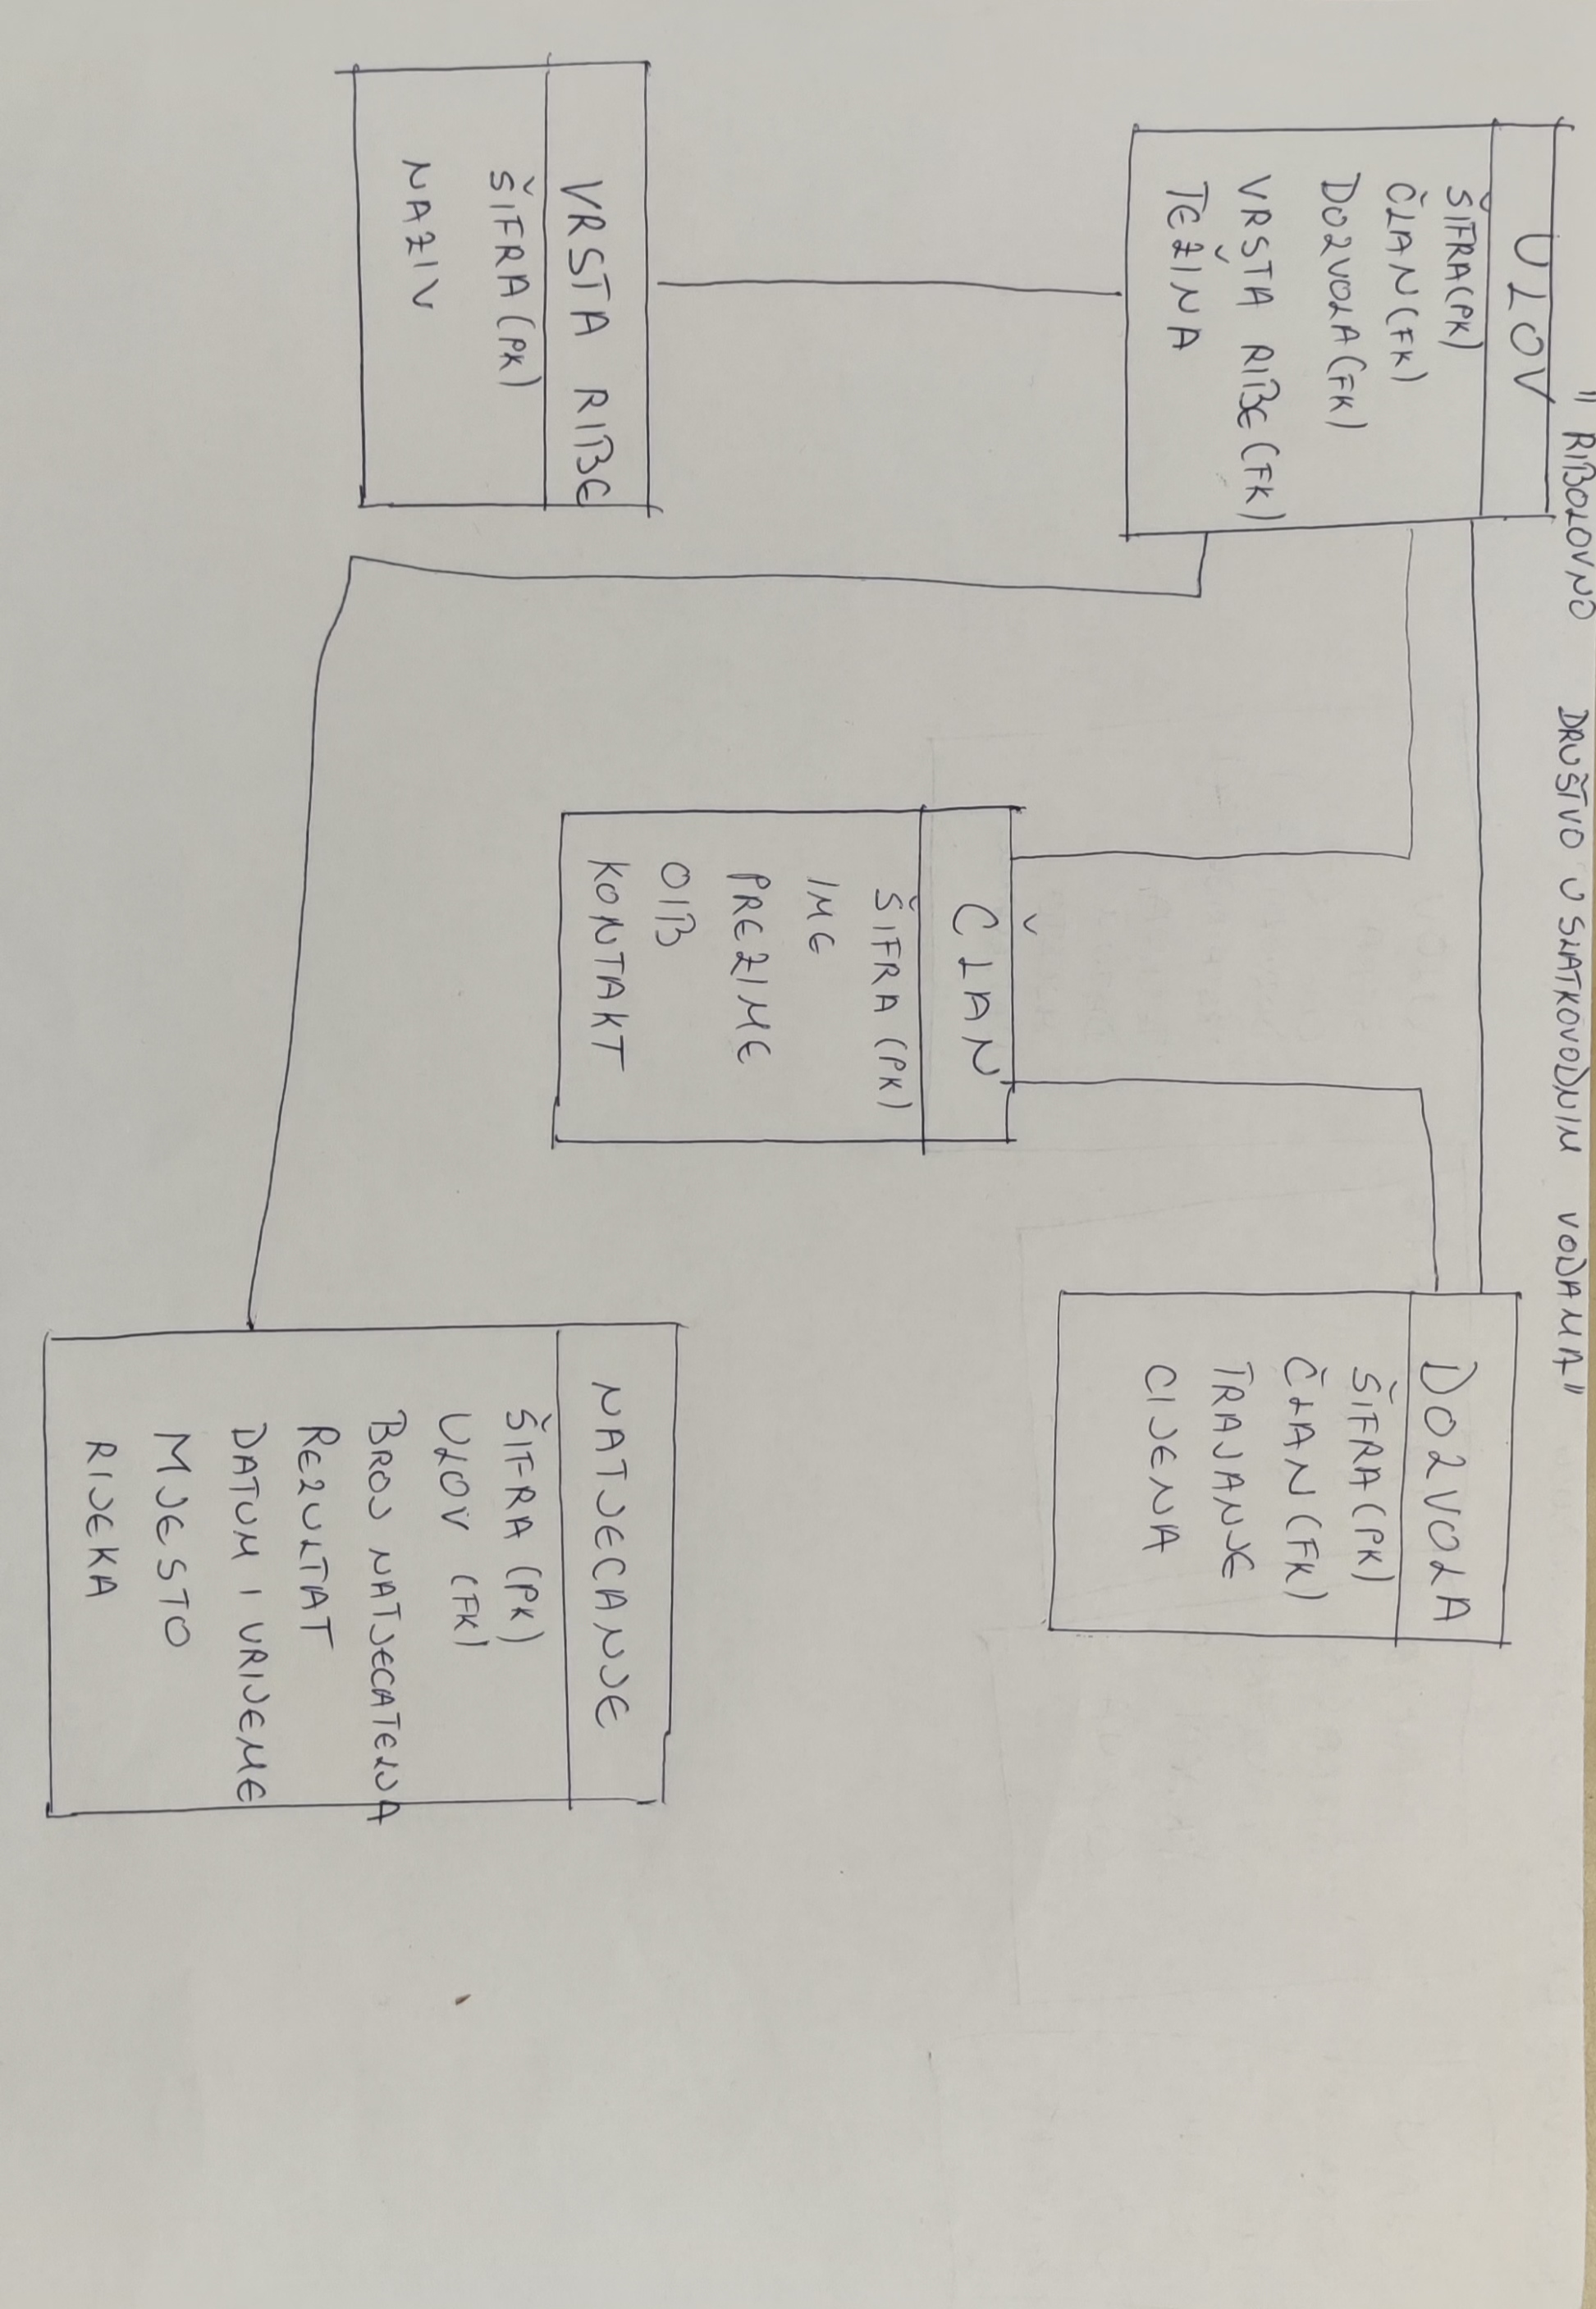 "RIBOLOVNO DRUŠTVO U SLATKOVODNIM VODAMA"
ULOV
ŠIFRA(PK)
ČLAN(FK)
DOZVOLA(FK)
VRSTA RIBE(FK)
TEŽINA
DOZVOLA
ŠIFRA(PK)
ČLAN(FK)
TRAJANJE
CIJENA
ČLAN
ŠIFRA(PK)
IME
PREZIME
OIB
KONTAKT
VRSTA RIBE
ŠIFRA(PK)
NAZIV
NATJECANJE
ŠIFRA (PK)
ULOV (FK)
BROJ NATJECATELJA
REZULTAT
DATUM I VRIJEME
MJESTO
RIJEKA